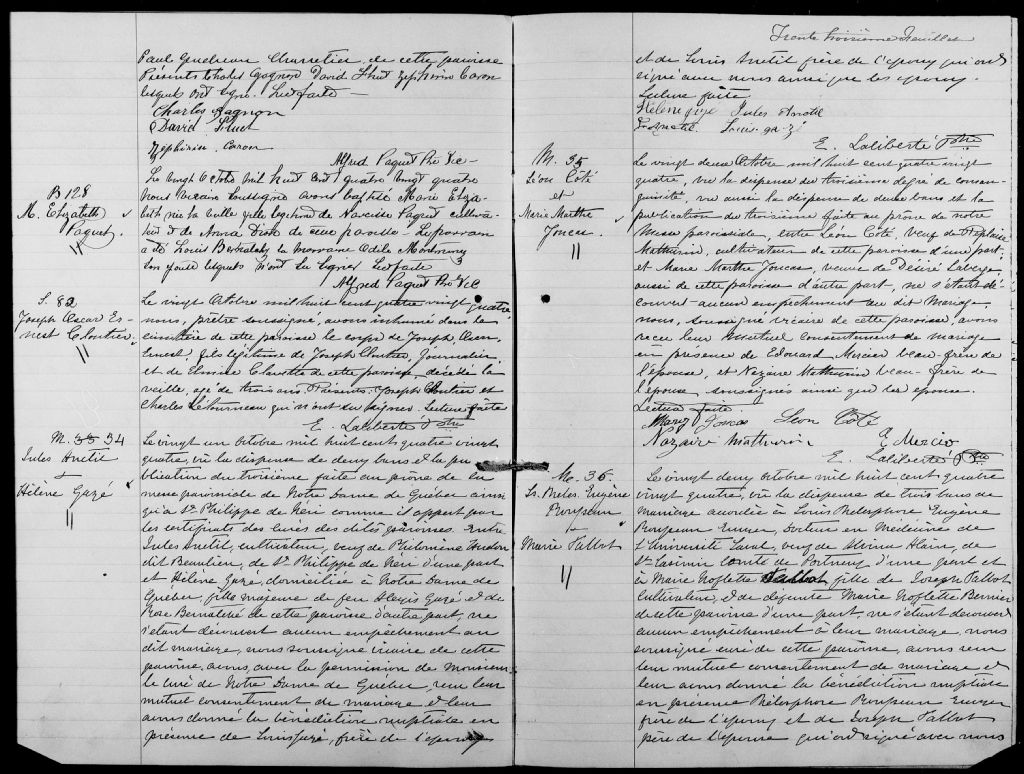 Paul Gendreau Charretier de cette paroisse
Présents Charles Gagnon David Zephirin Caron
lesquels ont signé. Lect faite
Charles Gagnon
David
Zephirin Caron
Alfred Paquet Ptre Vic
B 128
M. Elizabeth
Paquet
Le vingt Octobre mil huit cent quatre vingt quatre
nous Vicaire soussigné avons baptisé Marie Eliza-
beth née la veille fille légitime de Narcisse Paquet cultiva-
teur et de de cette paroisse. Le parrain
a été Louis la marraine Odile Montminy
son épouse lesquels n'ont su signer Lect faite
Alfred Paquet Ptre Vic
S. 82
Joseph Oscar Er-
nest Cloutier
Le vingt Octobre mil huit cent quatre vingt quatre
nous, prêtre soussigné, avons inhumé dans le
cimetière de cette paroisse le corps de Joseph, Oscar
Ernest, fils légitime de Joseph Cloutier, journalier
et de de cette paroisse, décédé la
veille, agé de trois ans. Présents, Joseph Cloutier et
Charles Létourneau qui n'ont su signer. Lecture faite
E. Laliberté Ptre
M. 34
Jules Anctil
+
Hélène Gazé
Le vingt un octobre mil huit cent quatre vingt
quatre, vu la dispense de deux bans et la pu-
blication du troisième faite au prone de la
messe paroissiale de Notre Dame de Québec ainsi
qu'à St Philippe de Néri comme il appert par
les certificats des curés des dites paroisses. Entre
Jules Anctil, cultivateur, veuf de Philomène Hudon
dit Beaulieu, de St Philippe de Néri d'une part
et Hélène Gazé, domiciliée à Notre Dame de
Québec, fille majeure de feu Alexis Gazé et de
Rose Bernatchè de cette paroisse d'autre part, ne
s'étant découvert aucun empêchement au
dit mariage, nous soussigné vicaire de cette
paroisse, avons, avec la permission de Monsieur
le curé de Notre Dame de Québec, reçu leur
mutuel consentement de mariage et leur
avons donné la bénédiction nuptiale en
présence de Louis Gazé, frère de l'épouse
Trente troisième Feuillet
et de Louis Anctil frère de l'époux qui ont
signé avec nous ainsi que les époux.
Lecture faite
Hélène Gazé Jules Anctil
L. Anctil Louis Gazé
E. Laliberté Ptre
M. 35
Léon Côté
et
Marie Marthe
Joncas
Le vingt deux Octobre mil huit cent quatre vingt
quatre, vu la dispense du troisième degré de consan-
guinité, vu aussi la dispense de deux bans et la
publication du troisième faite au prone de notre
Messe paroissiale, entre Léon Côté, veuf de
Mathurin, cultivateur de cette paroisse d'une part,
et Marie Marthe Joncas, veuve de Désiré
aussi de cette paroisse d'autre part, ne s'étant dé-
couvert aucun empêchement au dit Mariage,
nous, soussigné vicaire de cette paroisse, avons
reçu leur mutuel consentement de mariage
en présence de Edouard Mercier beau-frère de
l'épouse, et Nazaire Mathurin beau-frère de
l'époux soussignés ainsi que les époux.
Lecture faite.
Marie Joncas Léon Côté
Nazaire Mathurin E Mercier
E. Laliberté Ptre
M. 36.
Ls. Eugène
Rousseau
+
Marie Talbot
Le vingt deux octobre mil huit cent quatre
vingt quatre, vu la dispense de trois bans de
mariage accordée à Louis Thélesphore Eugène
Rousseau Ecuyer, Docteur en Médecine de
l'Université Laval, veuf de Alvina de
St Casimir comté de Portneuf d'une part et
à Marie Noflette Talbot, fille de Joseph Talbot
Cultivateur, et de défunte Marie Noflette Bernier
de cette paroisse d'une part, ne s'étant découvert
aucun empêchement à leur mariage, nous
soussigné curé de cette paroisse, avons reçu
leur mutuel consentement de mariage et
leur avons donné la bénédiction nuptiale
en présence Thélesphore Rousseau Ecuyer
frère de l'époux et de Joseph Talbot
père de l'épouse qui ont signé avec nous